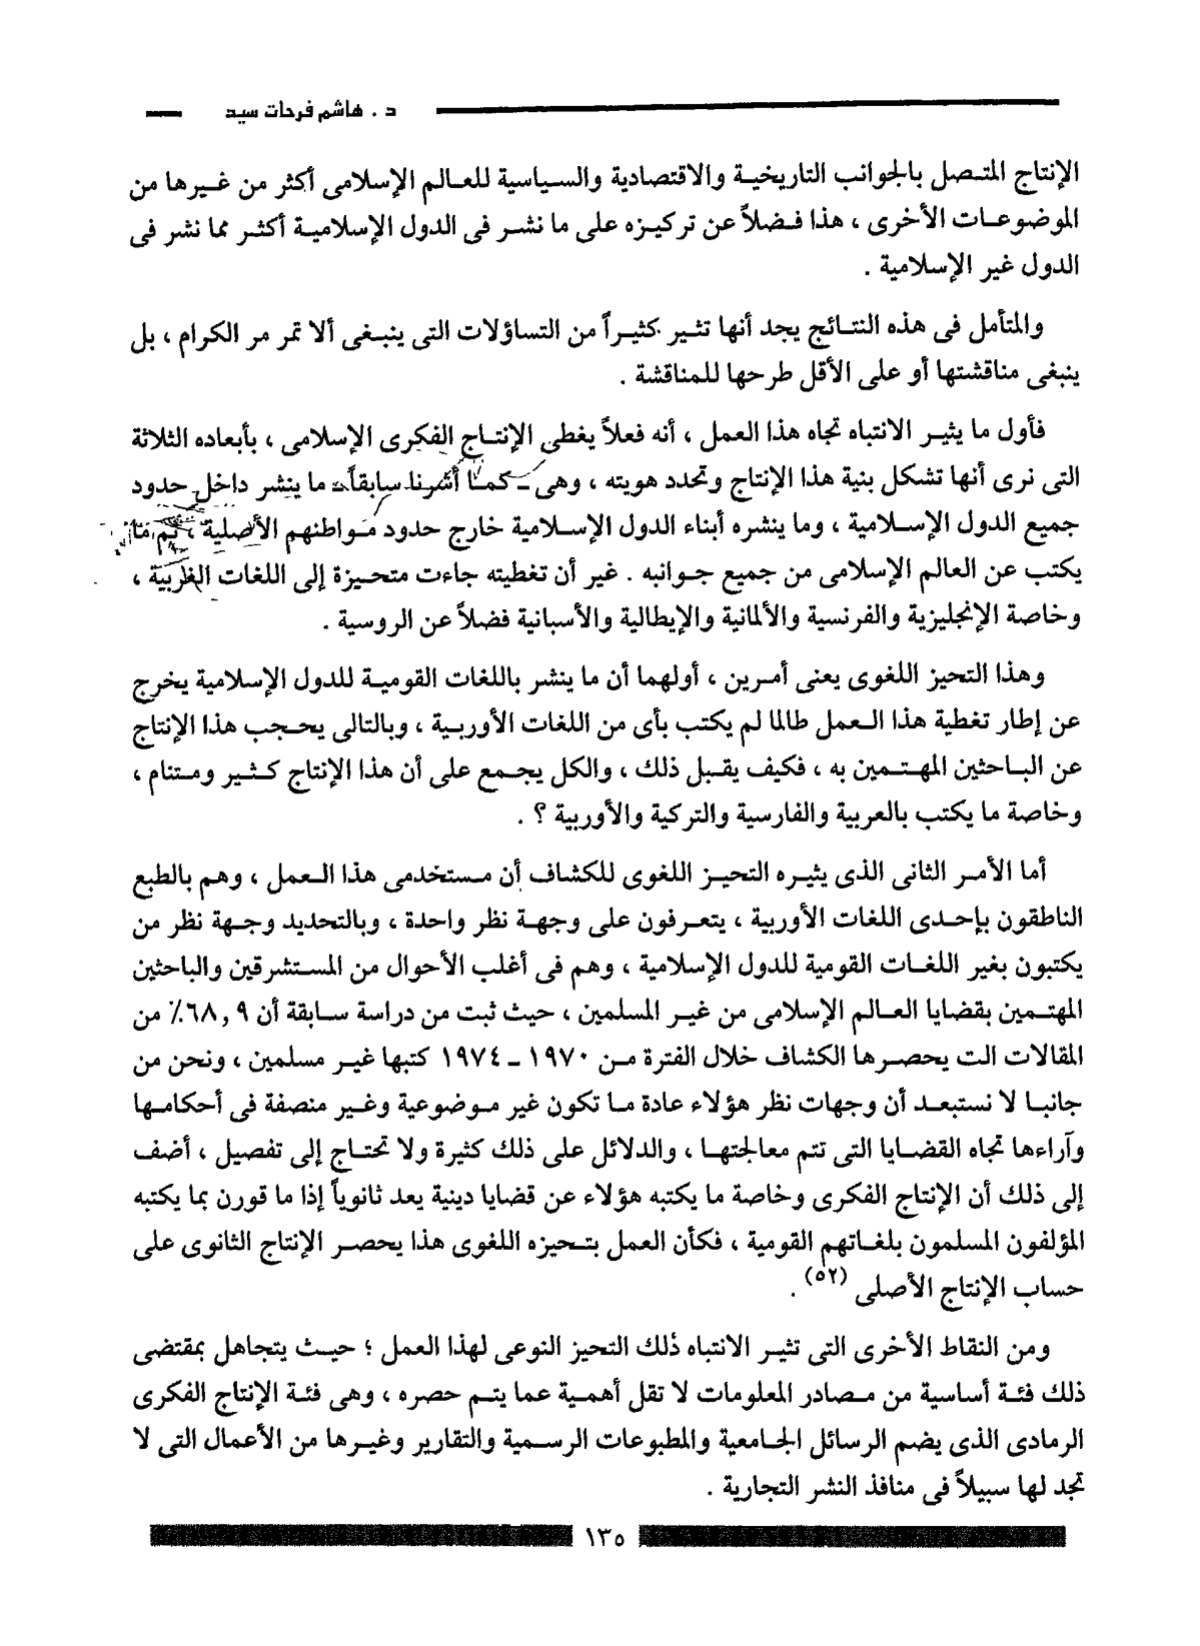 د . هاشم فرحات سيد
الإنتاج المتصل بالجوانب التاريخية والاقتصادية والسياسية للعالم الإسلامى أكثر من غيرها من
الموضوعات الأخرى ، هذا فضلاً عن تركيزه على ما نشر فى الدول الإسلامية أكثر مما نشر فى
الدول غير الإسلامية .
والمتأمل فى هذه النتائج يجد أنها تثير كثيراً من التساؤلات التى ينبغى ألا تمر مر الكرام ، بل
ينبغى مناقشتها أو على الأقل طرحها للمناقشة .
فأول ما يثير الانتباه تجاه هذا العمل ، أنه فعلاً يغطى الإنتاج الفكرى الإسلامى ، بأبعاده الثلاثة
التى نرى أنها تشكل بنية هذا الإنتاج وتحدد هويته ، وهى ـ كما أشرنا سابقاً ـ ما ينشر داخل حدود
جميع الدول الإسلامية ، وما ينشره أبناء الدول الإسلامية خارج حدود مواطنهم الأصلية ، ثم ما
يكتب عن العالم الإسلامى من جميع جوانبه . غير أن تغطيته جاءت متحيزة إلى اللغات الغربية ،
وخاصة الإنجليزية والفرنسية والألمانية والإيطالية والأسبانية فضلاً عن الروسية .
وهذا التحيز اللغوى يعنى أمرين ، أولهما أن ما ينشر باللغات القومية للدول الإسلامية يخرج
عن إطار تغطية هذا العمل طالما لم يكتب بأى من اللغات الأوربية ، وبالتالى يحجب هذا الإنتاج
عن الباحثين المهتمين به ، فكيف يقبل ذلك ، والكل يجمع على أن هذا الإنتاج كثير ومتنام ،
وخاصة ما يكتب بالعربية والفارسية والتركية والأوربية ؟ .
أما الأمر الثانى الذى يثيره التحيز اللغوى للكشاف أن مستخدمى هذا العمل ، وهم بالطبع
الناطقون بإحدى اللغات الأوربية ، يتعرفون على وجهة نظر واحدة ، وبالتحديد وجهة نظر من
يكتبون بغير اللغات القومية للدول الإسلامية ، وهم فى أغلب الأحوال من المستشرقين والباحثين
المهتمين بقضايا العالم الإسلامى من غير المسلمين ، حيث ثبت من دراسة سابقة أن ٦٨,٩٪ من
المقالات الت يحصرها الكشاف خلال الفترة من ١٩٧٠ ـ ١٩٧٤ كتبها غير مسلمين ، ونحن من
جانبا لا نستبعد أن وجهات نظر هؤلاء عادة ما تكون غير موضوعية وغير منصفة فى أحكامها
وآراءها تجاه القضايا التى تتم معالجتها ، والدلائل على ذلك كثيرة ولا تحتاج إلى تفصيل ، أضف
إلى ذلك أن الإنتاج الفكرى وخاصة ما يكتبه هؤلاء عن قضايا دينية يعد ثانوياً إذا ما قورن بما يكتبه
المؤلفون المسلمون بلغاتهم القومية ، فكأن العمل بتحيزه اللغوى هذا يحصر الإنتاج الثانوى على
حساب الإنتاج الأصلى (٥٢) .
ومن النقاط الأخرى التى تثير الانتباه ذلك التحيز النوعى لهذا العمل ؛ حيث يتجاهل بمقتضى
ذلك فئة أساسية من مصادر المعلومات لا تقل أهمية عما يتم حصره ، وهى فئة الإنتاج الفكرى
الرمادى الذى يضم الرسائل الجامعية والمطبوعات الرسمية والتقارير وغيرها من الأعمال التى لا
تجد لها سبيلاً فى منافذ النشر التجارية .
١٣٥